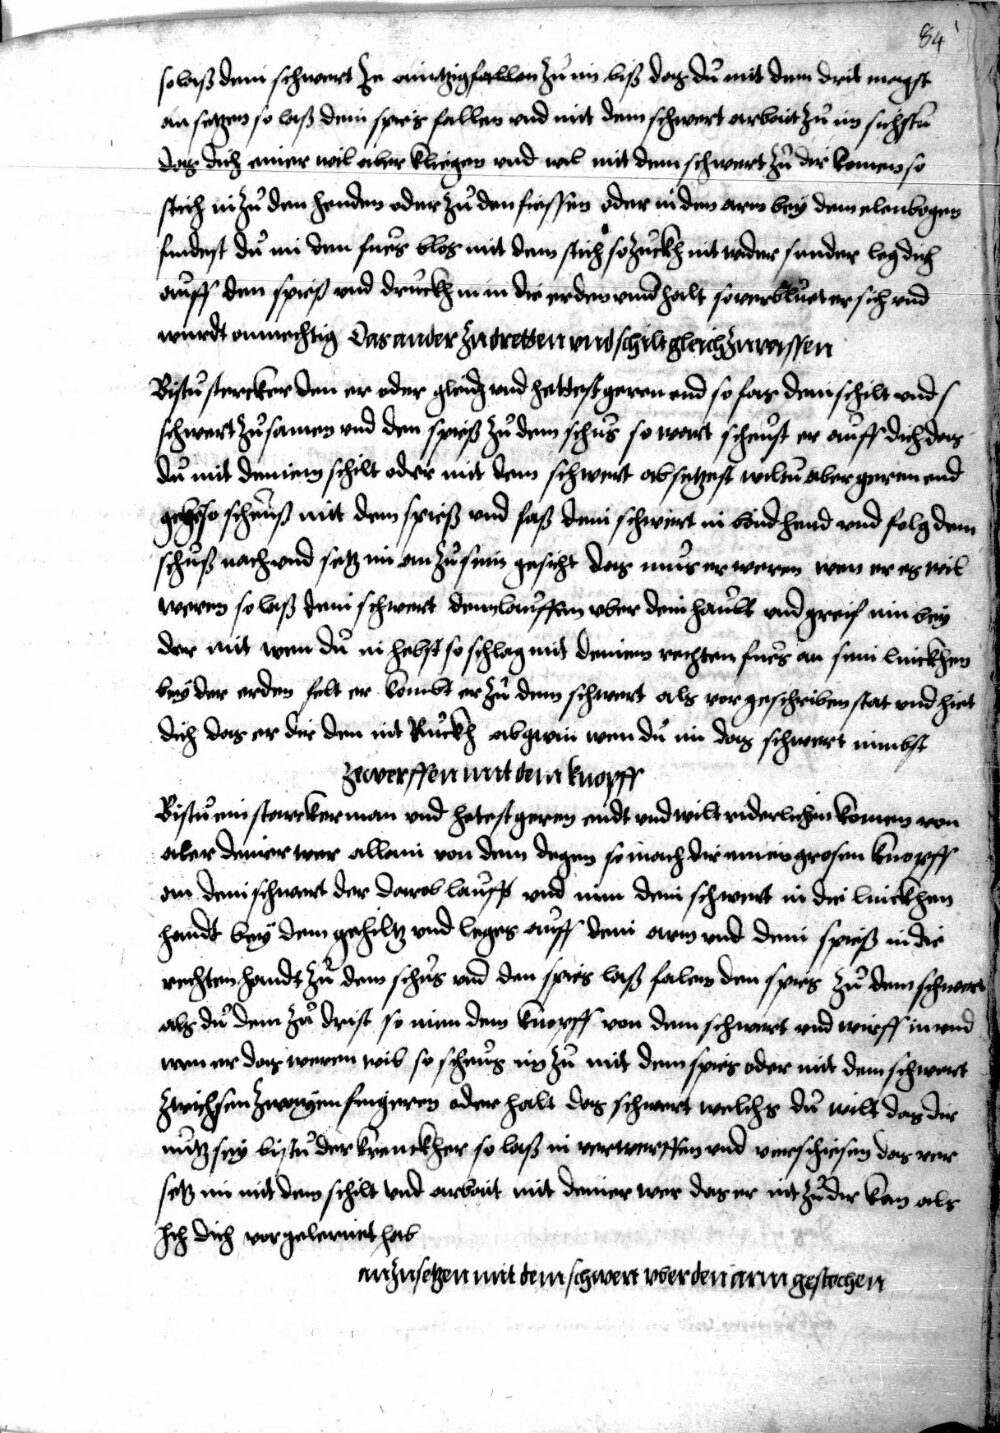 84
so laß dein schwert Ze aintzig fallen zů im biß das dů mit dem drit magst
an setzen so laß dein spies fallen vnd mit dem schwert arbait zů im sichstu
das dich einer wil aber kriegen vnd wil mit dem schwert zů dir komen so
stich in zů den henden oder zů den fiessen oder in den arm bey dem elenbogen
findest dů im den fues blos mit dem stich so zuckh nit wider sunder leg dich
auff den spieß vnd druckh in in die erden vnnd halt so verblůet er sich vnd
wurdt onmechtig Das ander zutretten vnd schilt gleich zuweissen
Bistu stercker den er oder gleich vnd hettest geren end so fas dein schilt vnd
schwert zůsamen vnd den spieß zů dem schůs so wart scheust er auff dich das
dů mit deinem schilt oder mit dem schwert absetzest wiltu aber geren end
geben so scheuß mit dem spieß vnd faß dein schwert in baid hend vnd folg dem
schůß nach vnd setz im an zů sein gesicht das můs er weren wen er es wil
weren so laß dein schwert dem lauffen vber dein haubt vnd greif nim bey
der mit wen dů in hebst so schlag mit deinem rechten fues an sein linckhen
bey der erden felt er kombt er zů dem schwert als vor geschriben stat vnd hiet
dich das er dir den nit Ruckh abgwin wen dů im das schwert nimbst
zuwerffen mit dem knopff
Bistu ein starcker man vnd hetest geren endt vnd wilt riderlichen komen von
aler deiner wer allain von dem degen so mach dir ainen grosen knopff
an dein schwert der darab lauff vnd nim dein schwert in die linckhen
handt bey dem gehiltz vnd leg es auff dein arm vnd dein spieß in die
rechten handt zů dem schůs vnd den spies laß falen den spies zů dem schwert
als dů dem zů drist so nim dem knopff von dem schwert vnd wirff in vnd
wen er das weren wil so scheus im zů mit dem spies oder mit dem schwert
zwichsen zwayen fingeren oder halt das schwert welchs dů wilt das dir
nůtz sey bistu der krenckher so laß in verwerffen vnd verschiesen das ver
setz im mit dem schilt vnd arbait mit deiner wer das er nit zů dir kan als
Ich dich vor gelernet hab
an zusetzen mit dem schwert vber den arm gestochen